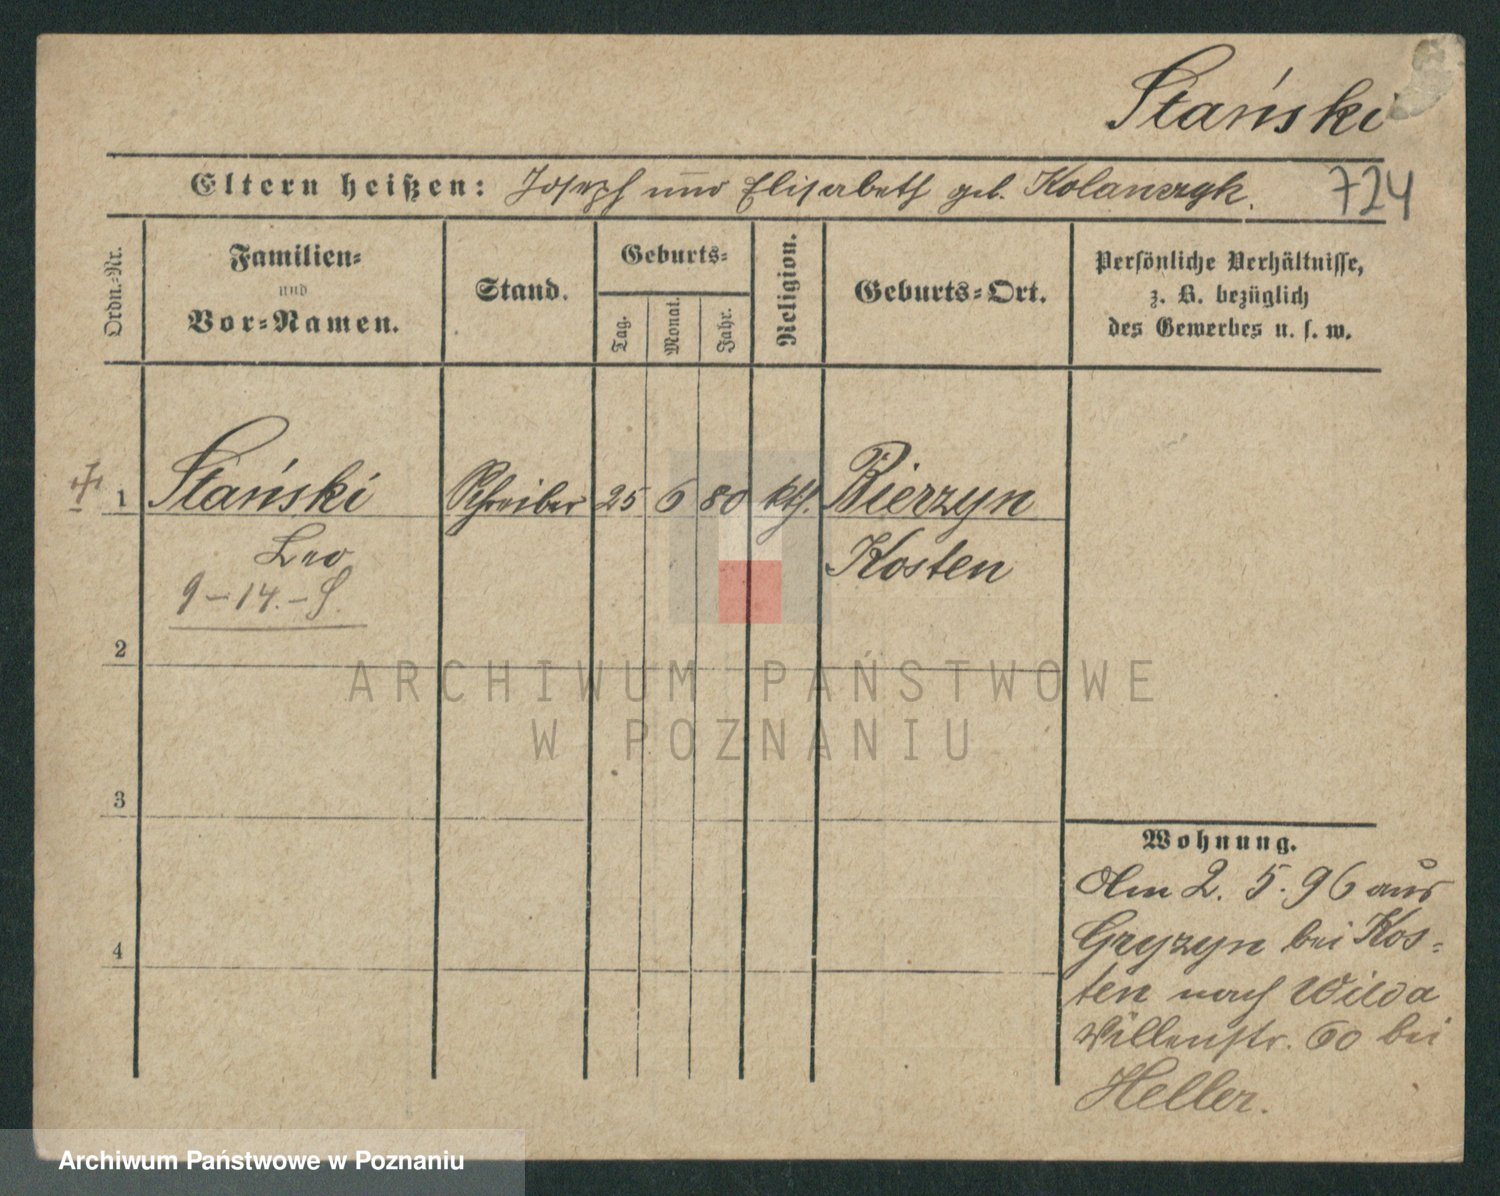 Stański
Eltern heißen: Joseph und Elisabeth geb. Kolanczyk.
724
Ordn.-Nr.
Familien-
und
Vor-Namen.
Stand.
Geburts-
Tag.
Monat.
Jahr.
Religion.
Geburts-Ort.
Persönliche Verhältnisse,
z. B. bezüglich
des Gewerbes u. s. w.
1 Stański Schreiber 25 6 80 kth. Bierzyn
Leo Kosten
9-14.-S.
2
ARCHIWUM PAŃSTWOWE
W POZNANIU
3
4
Wohnung.
Am 2. 5. 96 aus
Gryzyn bei Kos-
ten nach Wilda
Villenstr. 60 bei
Heller.
Archiwum Państwowe w Poznaniu